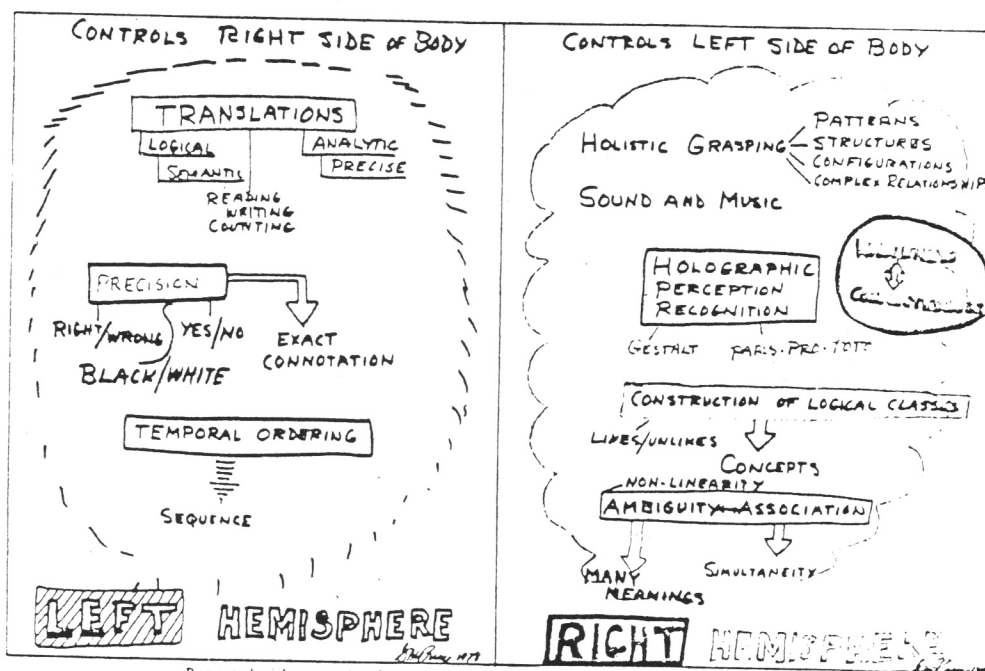 CONTROLS RIGHT SIDE OF BODY
TRANSLATIONS
LOGICAL
SEMANTIC
ANALYTIC
PRECISE
READING
WRITING
COUNTING
PRECISION
RIGHT/WRONG
YES/NO
BLACK/WHITE
EXACT
CONNOTATION
TEMPORAL ORDERING
SEQUENCE
LEFT HEMISPHERE
1979
CONTROLS LEFT SIDE OF BODY
HOLISTIC GRASPING
PATTERNS
STRUCTURES
CONFIGURATIONS
COMPLEX RELATIONSHIP
SOUND AND MUSIC
HOLOGRAPHIC
PERCEPTION
RECOGNITION
GESTALT
PARS-PRO-TOTO
CONSTRUCTION OF LOGICAL CLASSES
LIKES/UNLIKES
CONCEPTS
NON-LINEARITY
AMBIGUITY-ASSOCIATION
MANY
MEANINGS
SIMULTANEITY
RIGHT HEMISPHERE